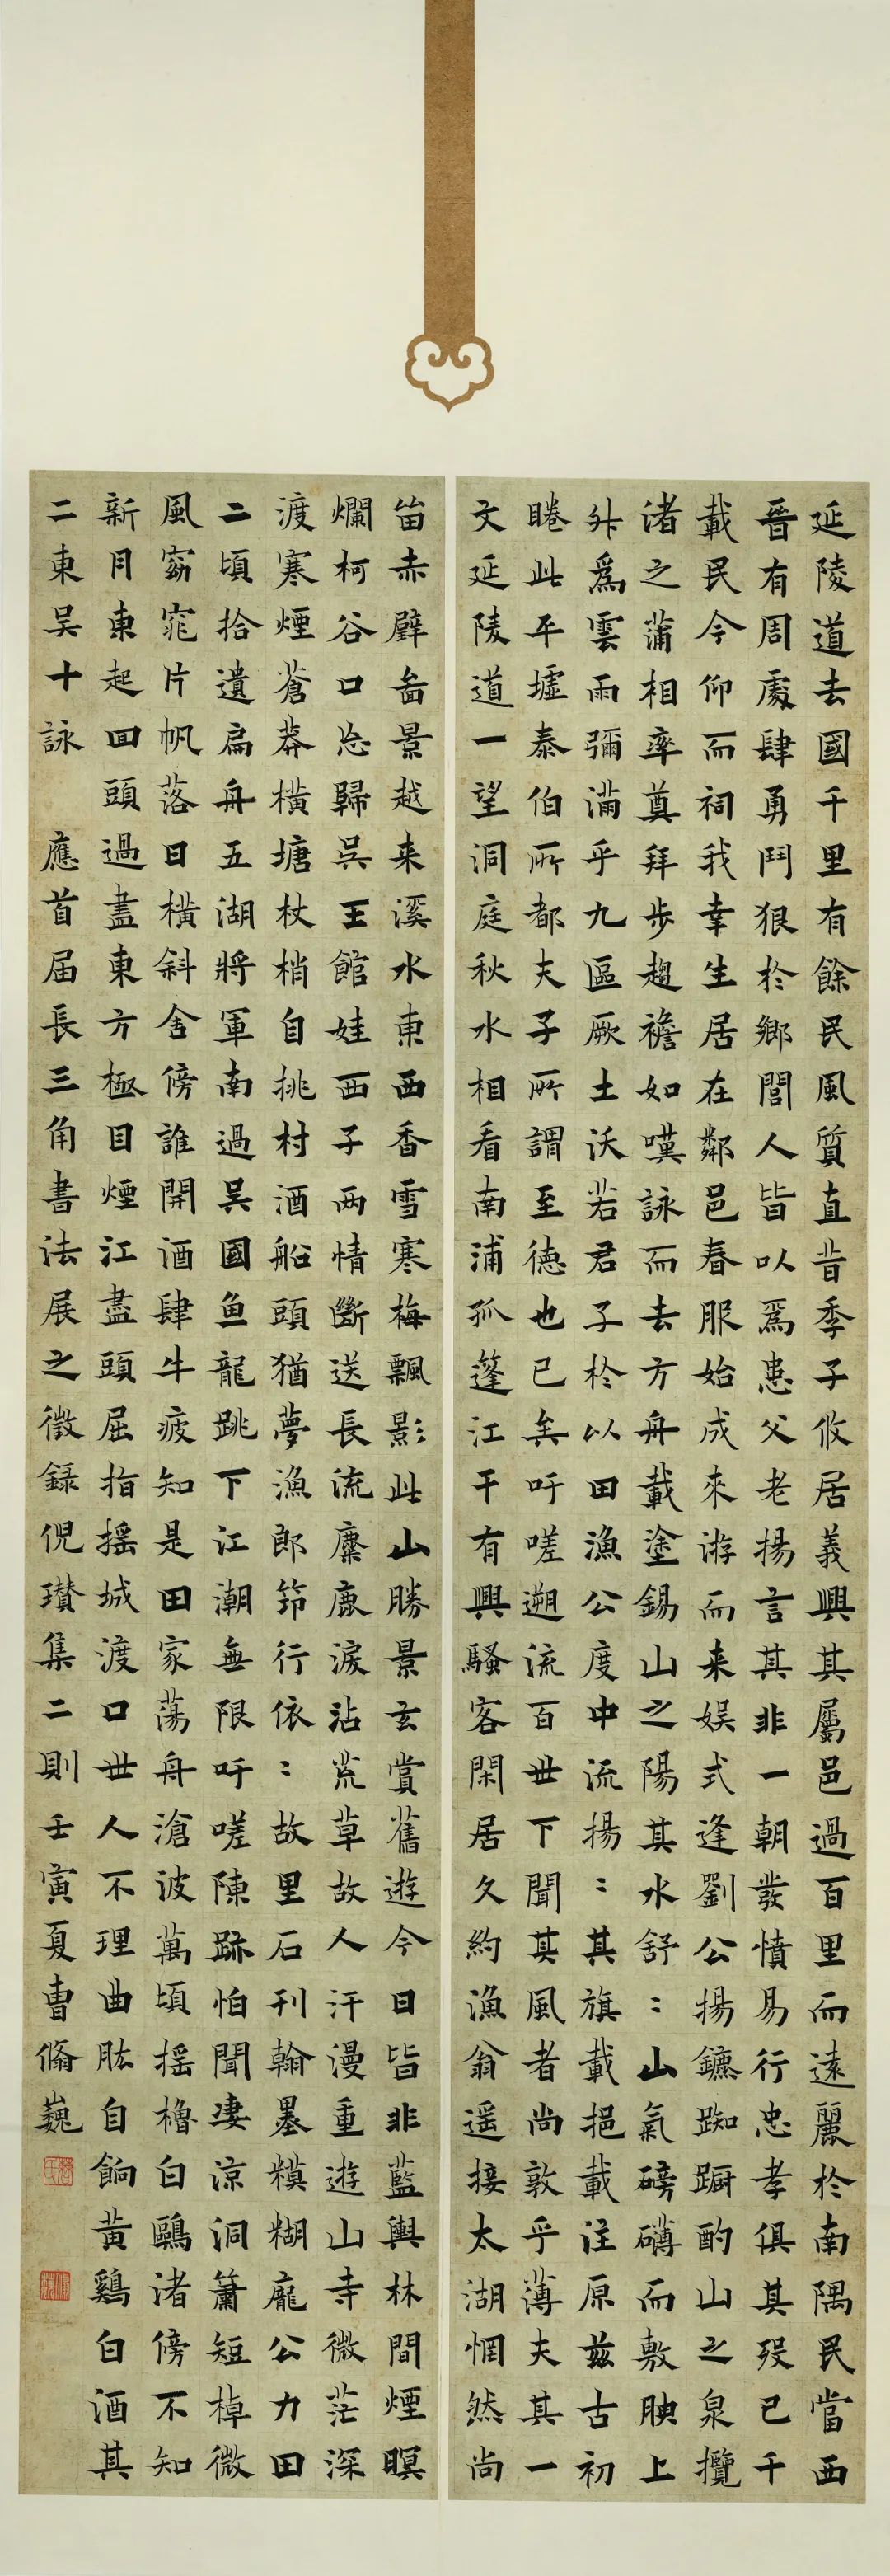 延陵道去國千里有餘民風質直昔季子攸居義興其屬邑過百里而遠麗於南隅民當西
晉有周處肆勇鬥狠於鄉閭人皆以爲患父老揚言其非一朝發憤易行忠孝俱其歿已千
載民今仰而祠我幸生居在鄰邑春服始成來游而来娱式逢劉公揚鑣踟蹰酌山之泉攬
渚之蒲相率奠拜步趨襜如嘆詠而去方舟載塗錫山之陽其水舒:山氣磅礴而敷腴上
升爲雲雨彌滿乎九區厥土沃若君子於以田漁公度中流揚:其旗載挹載注原兹古初
睠此平墟泰伯所都夫子所謂至德也已矣吁嗟遡流百世下聞其風者尚敦乎薄夫其一
文延陵道一望洞庭秋水相看南浦孤蓬江干有興騷客閑居久約漁翁遥接太湖惘然尚
留赤壁畣景越来溪水東西香雪寒梅飄影此山勝景玄賞舊遊今日皆非藍輿林間煙暝
爛柯谷口忘歸吳王館娃西子两情斷送長流麋鹿淚沾荒草故人汗漫重遊山寺微茫深
渡寒煙蒼莽橫塘杖梢自挑村酒船頭猶夢漁郎筇行依:故里石刊翰墨糢糊龐公力田
二頃拾遺扁舟五湖將軍南過吳國鱼龍跳下江潮無限吁嗟陳跡怕聞凄涼洞簫短棹微
風窈窕片帆落日橫斜舍傍誰開酒肆牛疲知是田家蕩舟滄波萬頃摇櫓白鷗渚傍不知
新月東起回頭過盡東方極目煙江盡頭屈指摇城渡口世人不理曲肱自餉黄鷄白酒其
二東吳十詠 應首届長三角書法展之徵録倪瓚集二則壬寅夏曹脩巍